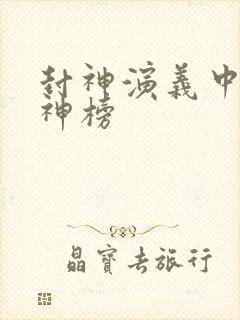 封神演義中
神榜
晶寶去旅行